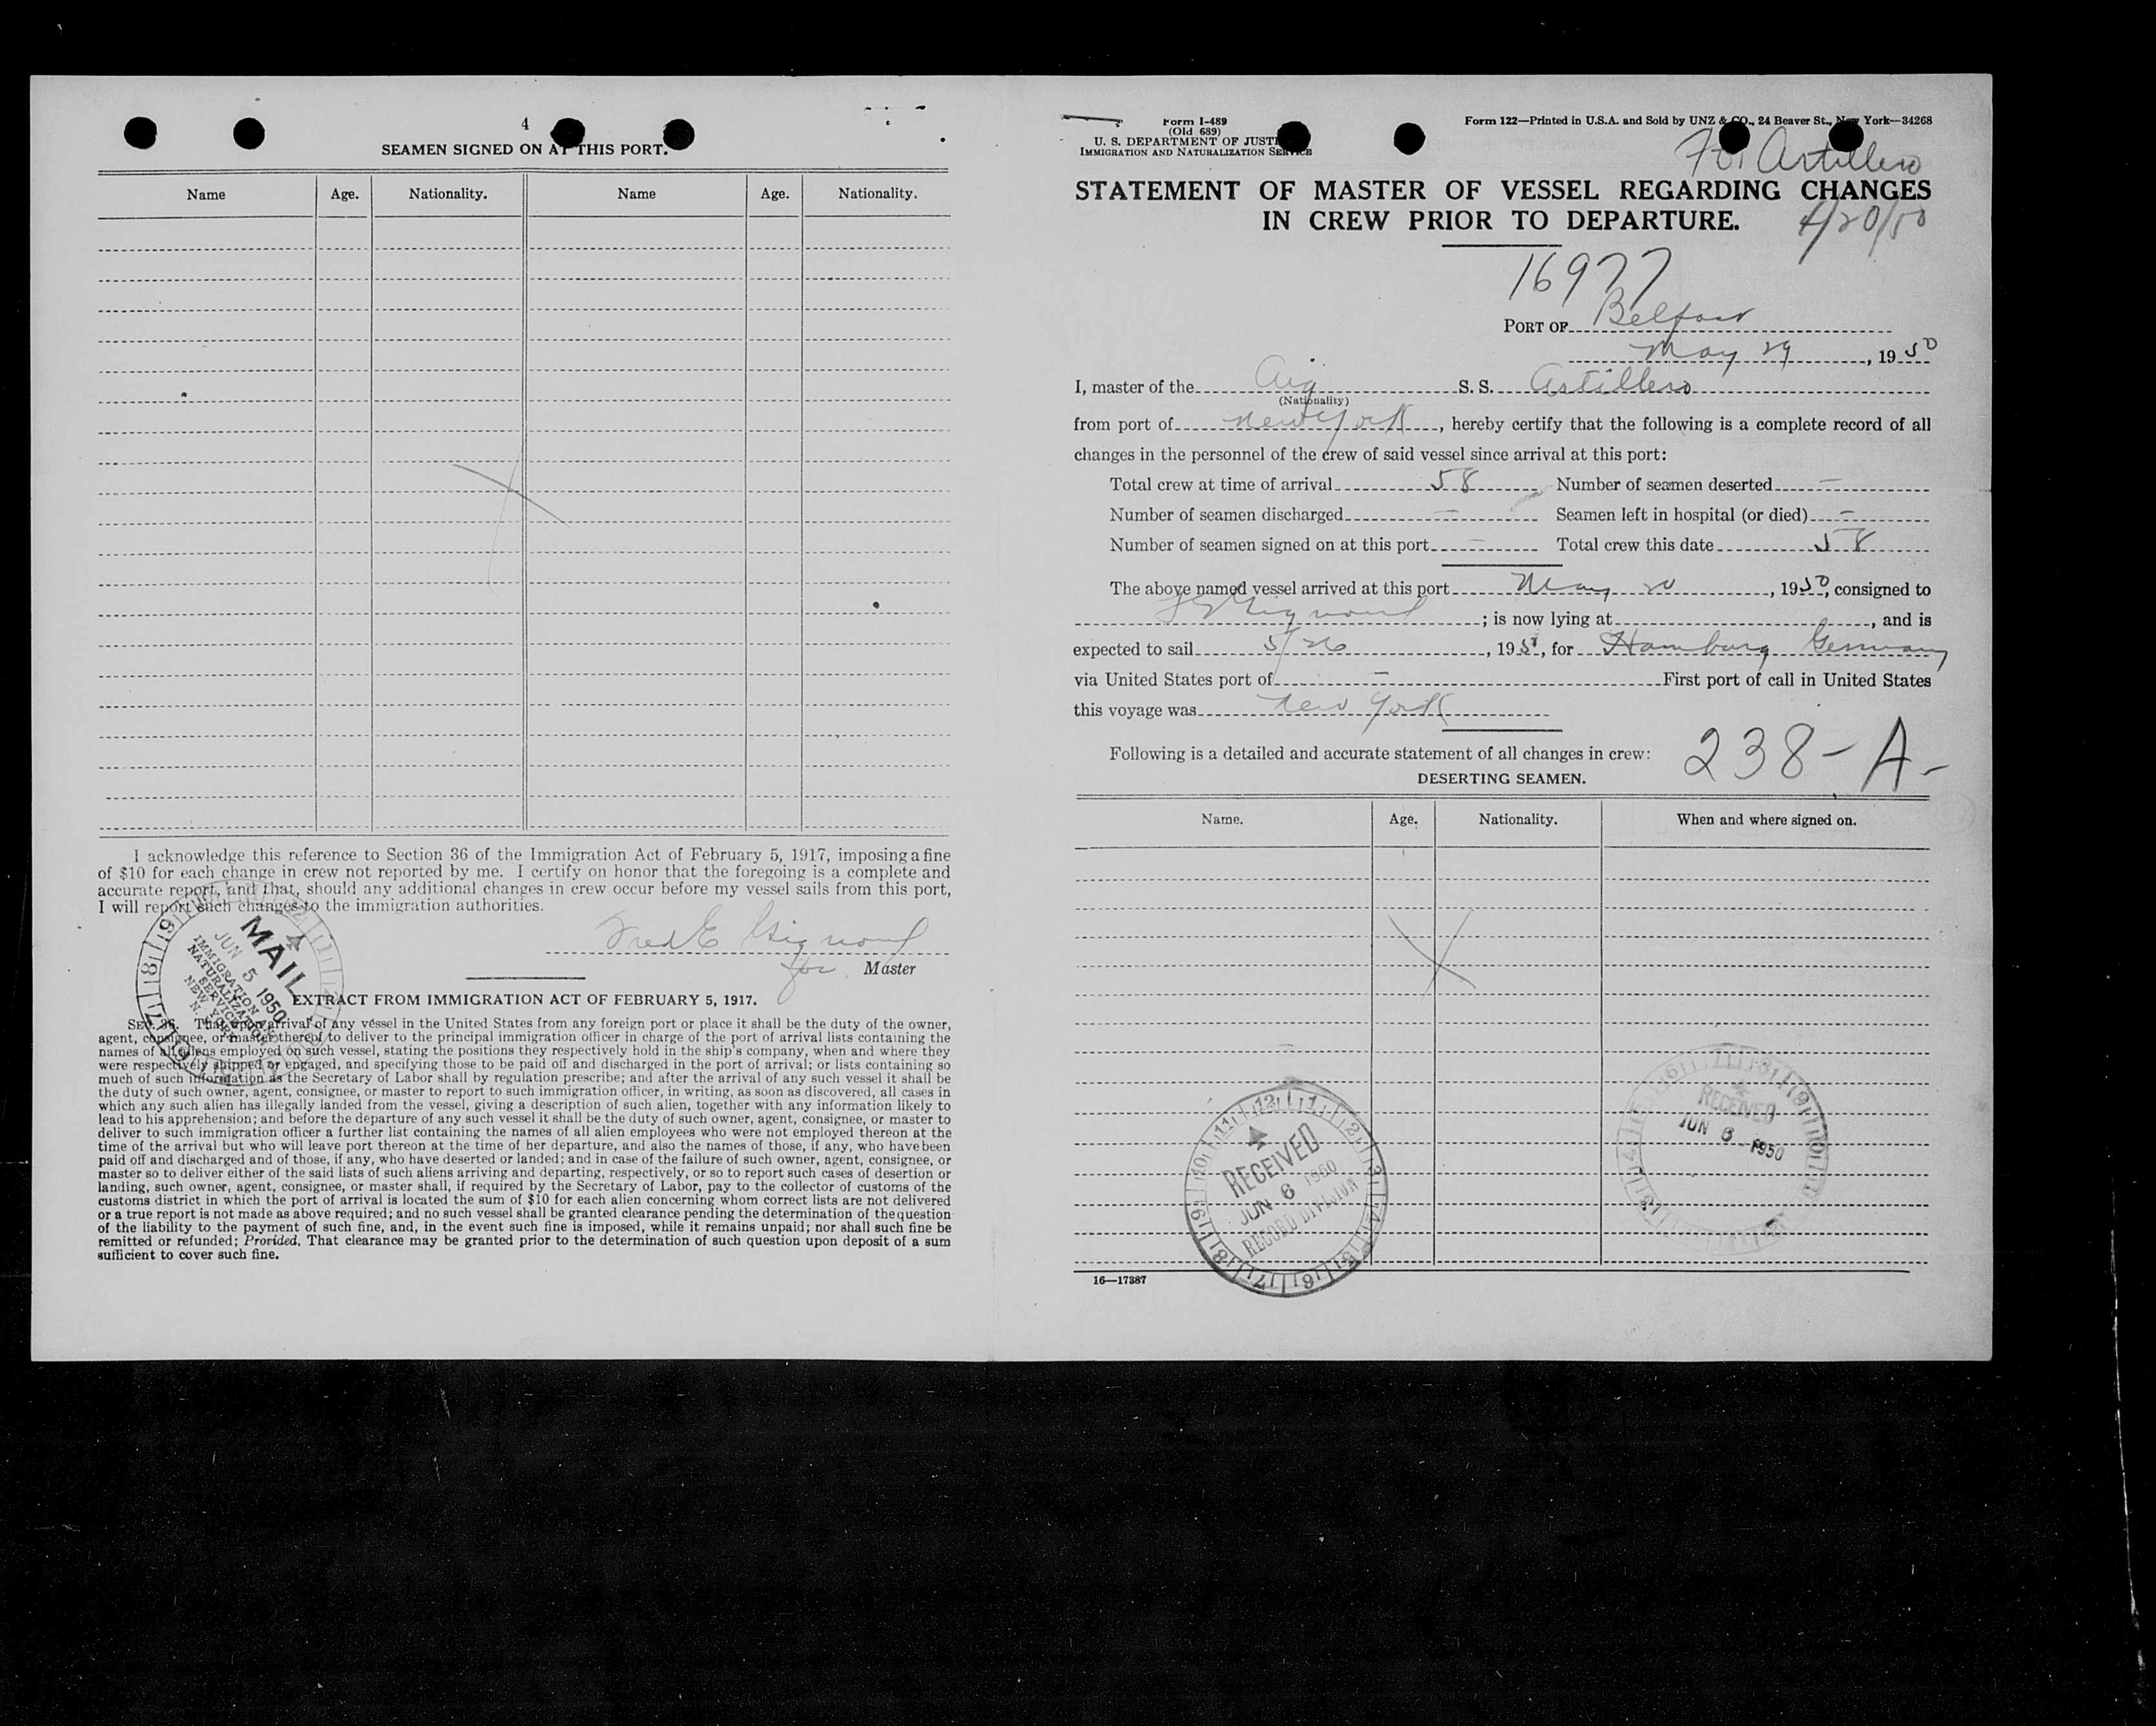 4
SEAMEN SIGNED ON AT THIS PORT.
Name Age. Nationality. Name Age. Nationality.
I acknowledge this reference to Section 36 of the Immigration Act of February 5, 1917, imposing a fine
of $10 for each change in crew not reported by me. I certify on honor that the foregoing is a complete and
accurate report, and that, should any additional changes in crew occur before my vessel sails from this port,
I will report such changes to the immigration authorities.
Fred E
for Master
MAIL
JUN 5 1950
IMMIGRATION AND
NATURALIZATION
SERVICE
NEW YORK
EXTRACT FROM IMMIGRATION ACT OF FEBRUARY 5, 1917.
SEC. 36. That upon arrival of any vessel in the United States from any foreign port or place it shall be the duty of the owner,
agent, consignee, or master thereof to deliver to the principal immigration officer in charge of the port of arrival lists containing the
names of all aliens employed on such vessel, stating the positions they respectively hold in the ship's company, when and where they
were respectively shipped or engaged, and specifying those to be paid off and discharged in the port of arrival; or lists containing so
much of such information as the Secretary of Labor shall by regulation prescribe; and after the arrival of any such vessel it shall be
the duty of such owner, agent, consignee, or master to report to such immigration officer, in writing, as soon as discovered, all cases in
which any such alien has illegally landed from the vessel, giving a description of such alien, together with any information likely to
lead to his apprehension; and before the departure of any such vessel it shall be the duty of such owner, agent, consignee, or master to
deliver to such immigration officer a further list containing the names of all alien employees who were not employed thereon at the
time of the arrival but who will leave port thereon at the time of her departure, and also the names of those, if any, who have been
paid off and discharged and of those, if any, who have deserted or landed; and in case of the failure of such owner, agent, consignee, or
master so to deliver either of the said lists of such aliens arriving and departing, respectively, or so to report such cases of desertion or
landing, such owner, agent, consignee, or master shall, if required by the Secretary of Labor, pay to the collector of customs of the
customs district in which the port of arrival is located the sum of $10 for each alien concerning whom correct lists are not delivered
or a true report is not made as above required; and no such vessel shall be granted clearance pending the determination of the question
of the liability to the payment of such fine, and, in the event such fine is imposed, while it remains unpaid; nor shall such fine be
remitted or refunded; Provided, That clearance may be granted prior to the determination of such question upon deposit of a sum
sufficient to cover such fine.
Form I-489
(Old 689)
U. S. DEPARTMENT OF JUSTICE
IMMIGRATION AND NATURALIZATION SERVICE
Form 122—Printed in U.S.A. and Sold by UNZ & CO., 24 Beaver St., New York—34268
Artillero
STATEMENT OF MASTER OF VESSEL REGARDING CHANGES
IN CREW PRIOR TO DEPARTURE.
4/20/50
16977
PORT OF Belfast
May 29, 1950
I, master of the Arg S. S. Artillero
(Nationality)
from port of New York, hereby certify that the following is a complete record of all
changes in the personnel of the crew of said vessel since arrival at this port:
Total crew at time of arrival 58 Number of seamen deserted —
Number of seamen discharged — Seamen left in hospital (or died) —
Number of seamen signed on at this port — Total crew this date 58
The above named vessel arrived at this port May 20, 1950, consigned to
; is now lying at , and is
expected to sail 5/26, 1950, for Hamburg Germany
via United States port of — First port of call in United States
this voyage was New York
Following is a detailed and accurate statement of all changes in crew:
238-A-
DESERTING SEAMEN.
Name. Age. Nationality. When and where signed on.
RECEIVED
JUN 6 1950
RECORD DIVISION
RECEIVED
JUN 6 1950
16—17387